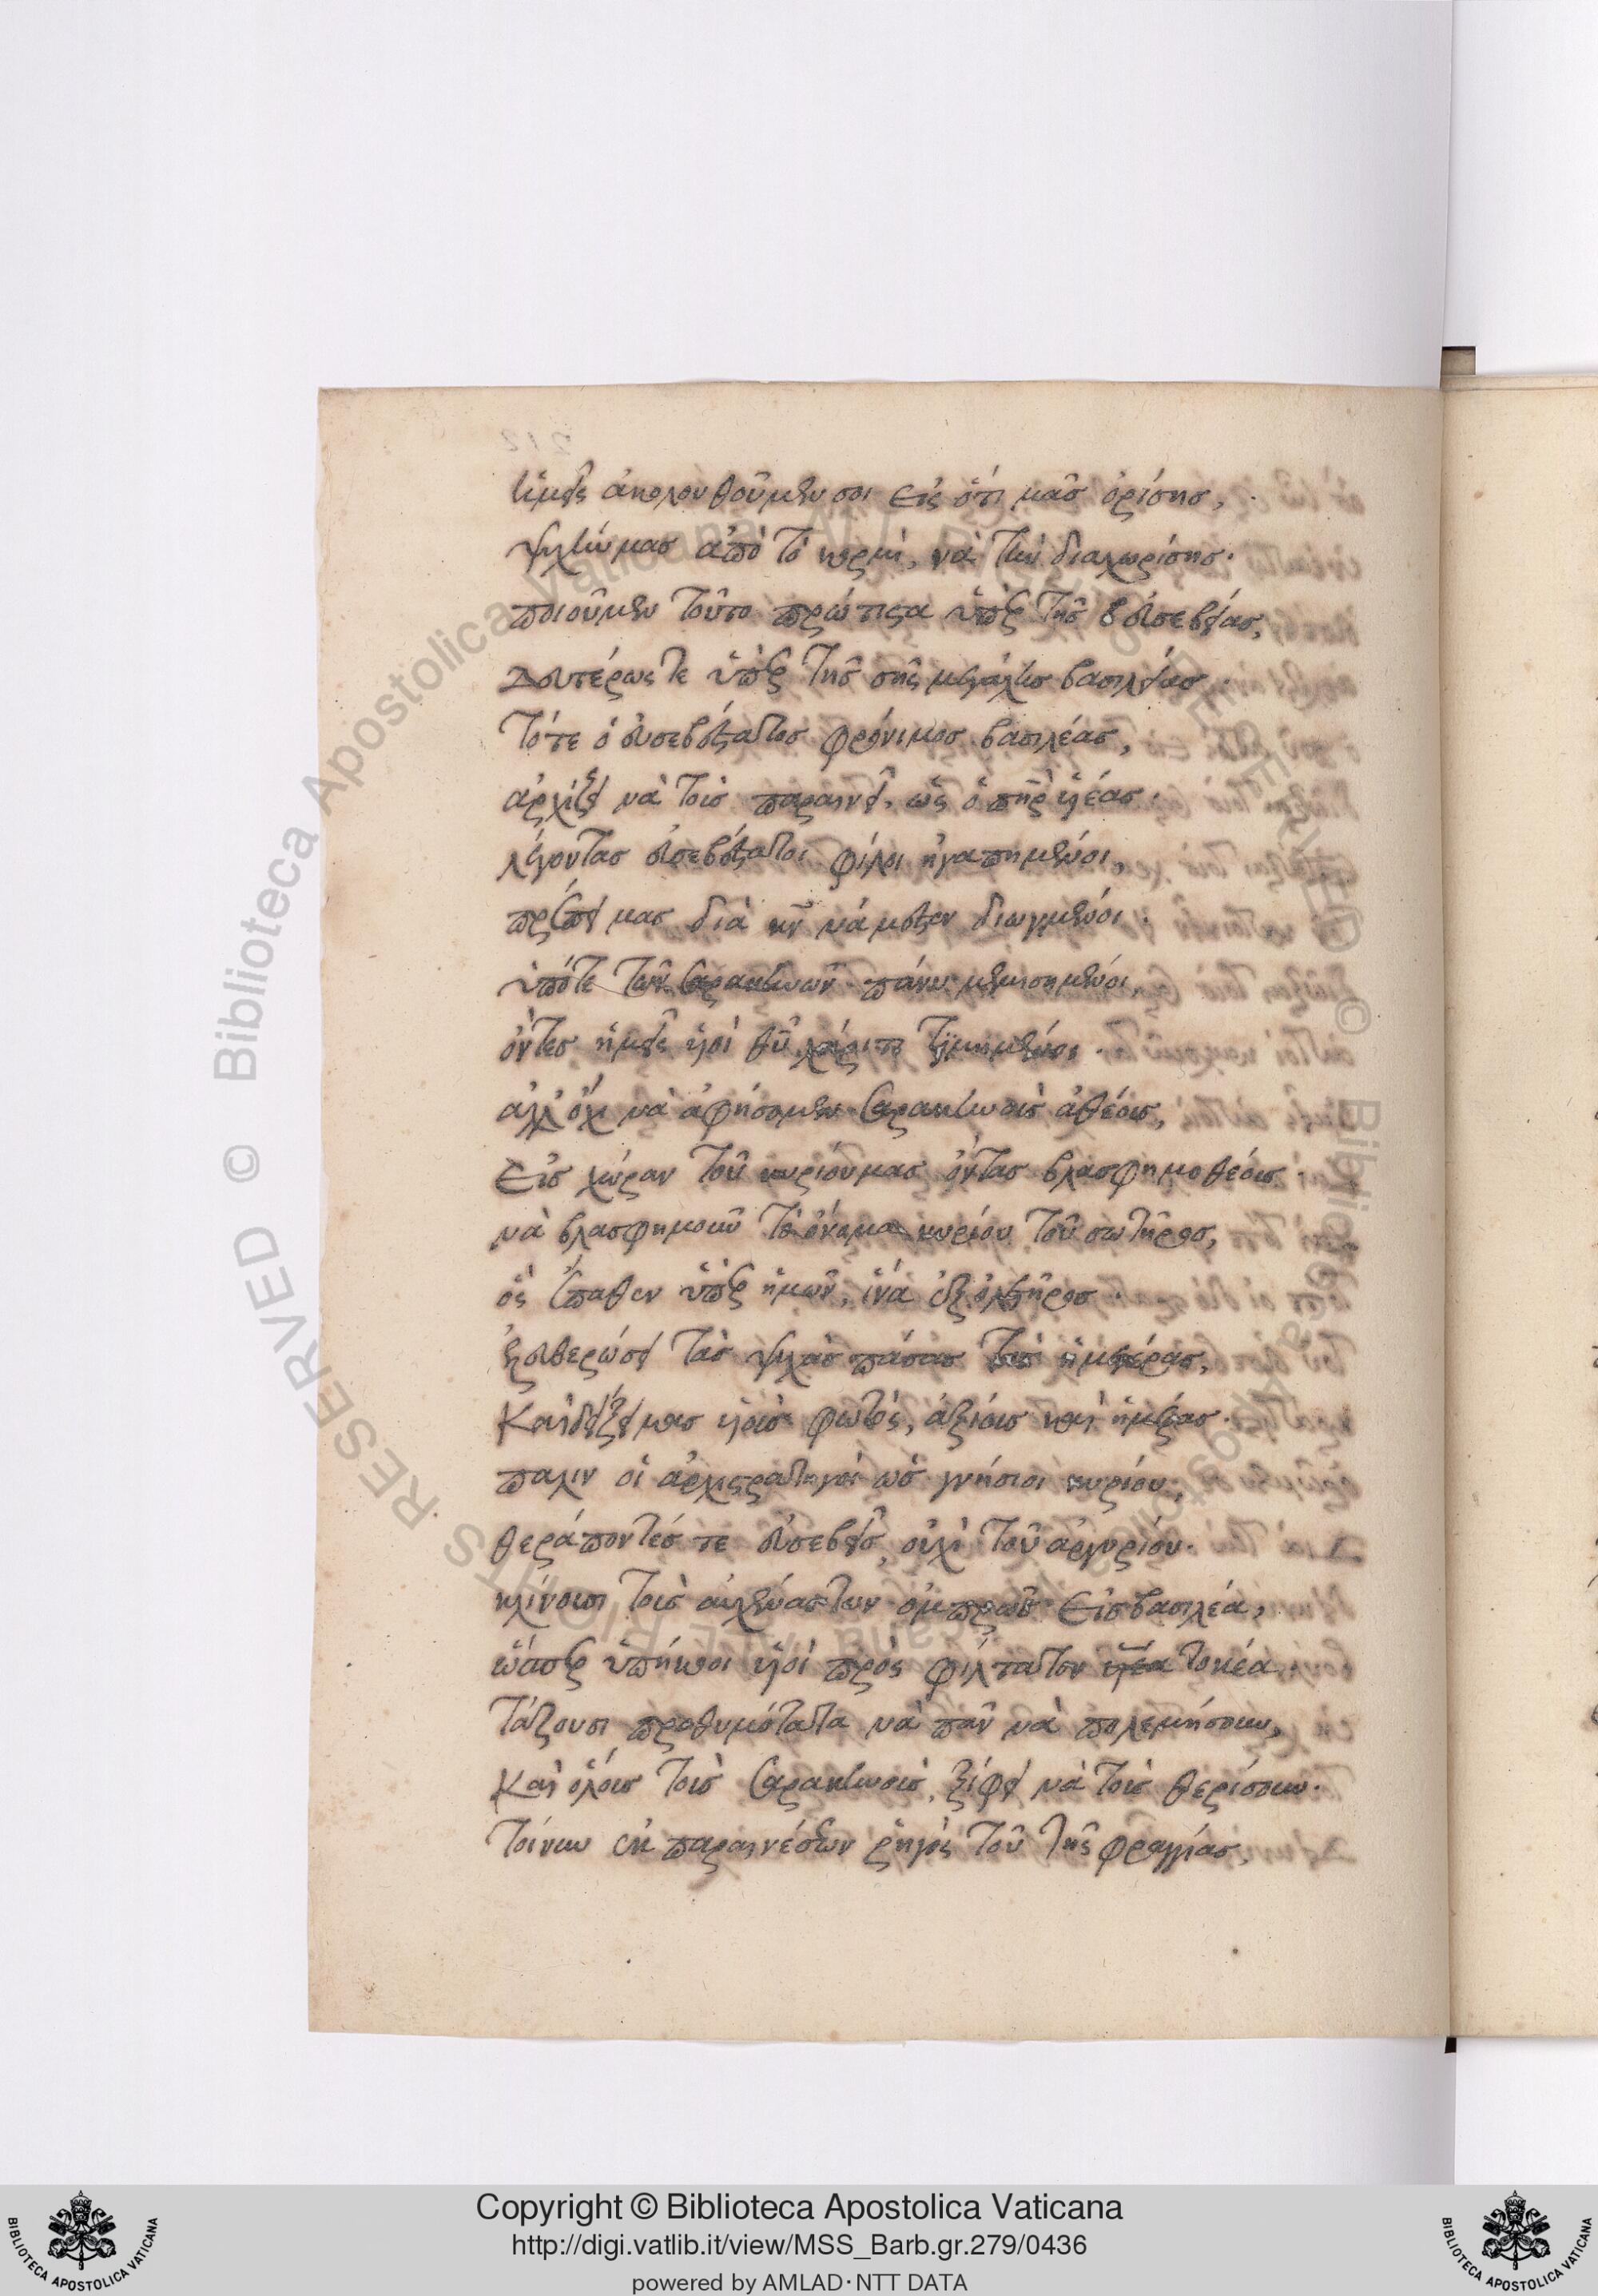 ἡμεῖς ἀκολουθοῦμεν σοι εἰς ὅτι μᾶς ὁρίσης,
ψυχὴν μας ἀπὸ τὸ κορμὶ, νὰ τὴν διαχωρίσης.
ποιοῦμεν τοῦτο πρώτιστα ὑπὲρ τῆς εὐσεβείας,
Δευτέρως τε ὑπὲρ τῆς σῆς μεγάλης βασιλείας.
Τότε ὁ εὐσεβέστατος φρόνιμος βασιλέας,
ἀρχίζει νὰ τοὺς παραινεῖ, ὡς ὁ πηρ υἱέας.
λέγοντας εὐσεβέστατοι φίλοι ἠγαπημένοι,
πρέπει μας διὰ κν νάμεσθεν διωγμένοι.
ὑπότε τῶν Σαρακηνῶν πάνυ μεμισημένοι,
ὄντες ἡμεῖς υἱοὶ θυ χάριτι τιμημένοι.
ἀλλ' ὄχι νὰ ἀφήσομεν Σαρακηνοὺς ἀθέους,
Εἰς χώραν τοῦ κυρίουμας ὄντας βλασφημοθέους.
νὰ βλασφημοῦν τὸ ὄνομα κυρίου τοῦ σωτῆρος,
ὃς ἔπαθεν ὑπὲρ ἡμῶν, ἵνα ἐξ ὀλετῆρος.
ἐλευθερώσει τὰς ψυχὰς πάσας τὰς ἡμετέρας,
Καὶ δείξει μας υἱοὺς φωτὸς, ἀξίους καὶ ἡμέρας.
παλιν οἱ ἀρχιστρατηγοὶ ὡς γνήσιοι κυρίου,
θεράποντές τε εὐσεβεῖς, οὐχὶ τοῦ ἀργυρίου.
κλίνουσι τοὺς αὐχένας των ὀμπρὸς Εἰς βασιλέα,
ὥσπερ ὑπήκοοι υἱοὶ πρὸς φίλτατον τοκέα.
Τάζουσι προθυμότατα νὰ πᾶν νὰ πολεμήσουν,
Καὶ ὅλους τοὺς Σαρακηνοὺς, ξίφει νὰ τοὺς θερίσουν.
Τοίνυν ἐκ παραινέσεων ῥηγὸς τοῦ τῆς φραγγίας,
Copyright © Biblioteca Apostolica Vaticana
http://digi.vatlib.it/view/MSS_Barb.gr.279/0436
powered by AMLAD·NTT DATA